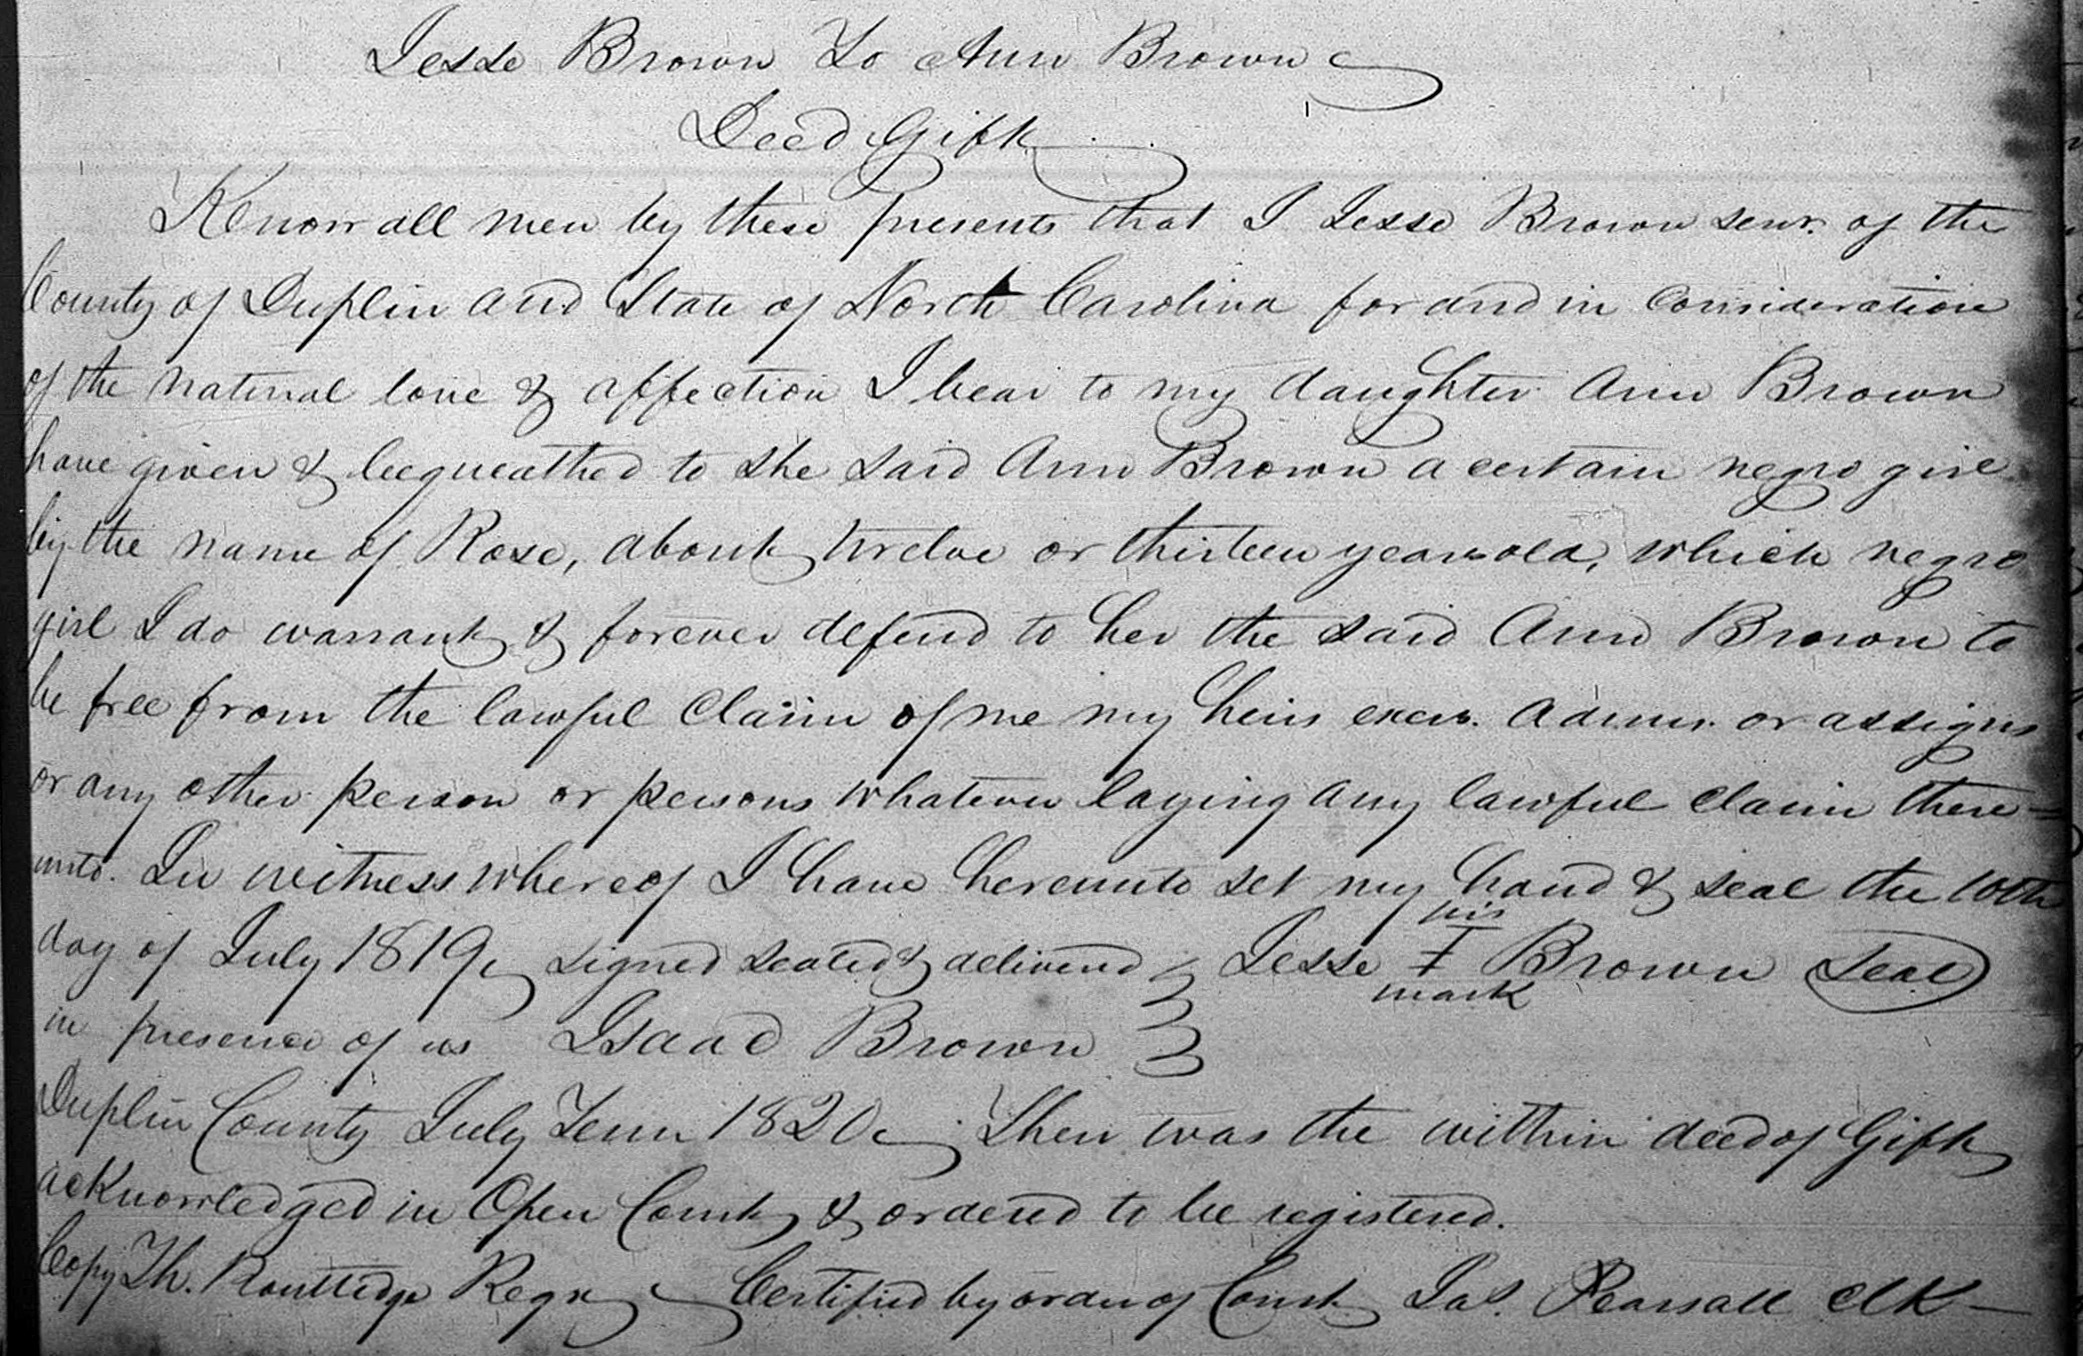 Jesse Brown To Ann Brown
Deed Gift
Know all men by these presents that I Jesse Brown senr. of the
County of Duplin and State of North Carolina for and in Consideration
of the natural love & affection I bear to my daughter Ann Brown
have given & bequeathed to she said Ann Brown a certain negro girl
by the name of Rose, about twelve or thirteen years old, which negro
girl I do warrant & forever defend to her the said Ann Brown to
be free from the lawful Claim of me my heirs exers. Admrs. or assigns
or any other person or persons whatever laying any lawful claim there=
unto. In witness whereof I have hereunto set my hand & seal the 10th
day of July 1819, signed sealed & delivered Jesse his I mark Brown Seal
in presence of us Isaac Brown
Duplin County July Term 1820. Then was the within deed of Gift
acknowledged in Open Court & ordered to be registered.
Copy Th. Routledge Regr Certified by order of Court Jas. Pearsall Clk